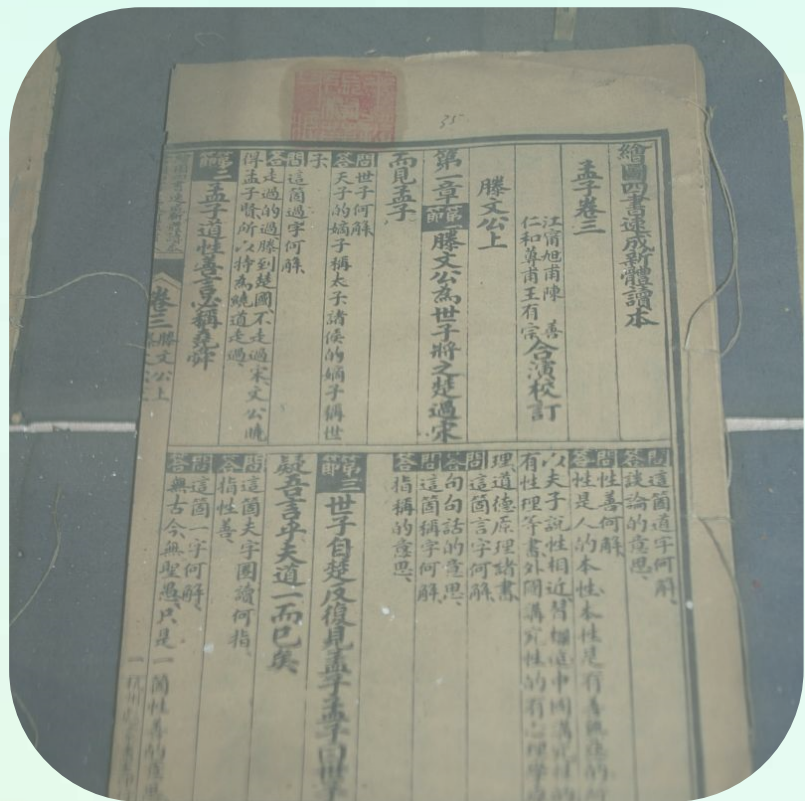 35
繪圖四書速成新體讀本
孟子卷三
江甯旭甫陳　善
仁和蓴甫王有宗
合演校訂
滕文公上
第一章第一節滕文公為世子將之楚過宋
而見孟子
問世子何解
答天子的嫡子稱太子諸侯的嫡子稱世
子
問這箇過字何解
答走過的過滕到楚國不走過宋文公曉
得孟子賢所以特為繞道走過
第二節孟子道性善言必稱堯舜
卷三滕文公上
問這箇道字何解
答談論的意思
問性善何解
答性是人的本性本性是有善無惡的所
以夫子說性相近
有性理等書外國講究性的有心理學
理道德原理諸書
問這箇言字何解
答句句話的意思
問這箇稱字何解
答指稱的意思
第三節世子自楚反復見孟子孟子曰世子
疑吾言乎夫道一而已矣
問這箇夫字圈讀何指
答指性善
問這箇一字何解
答無古今無聖愚只是一箇性善的意思